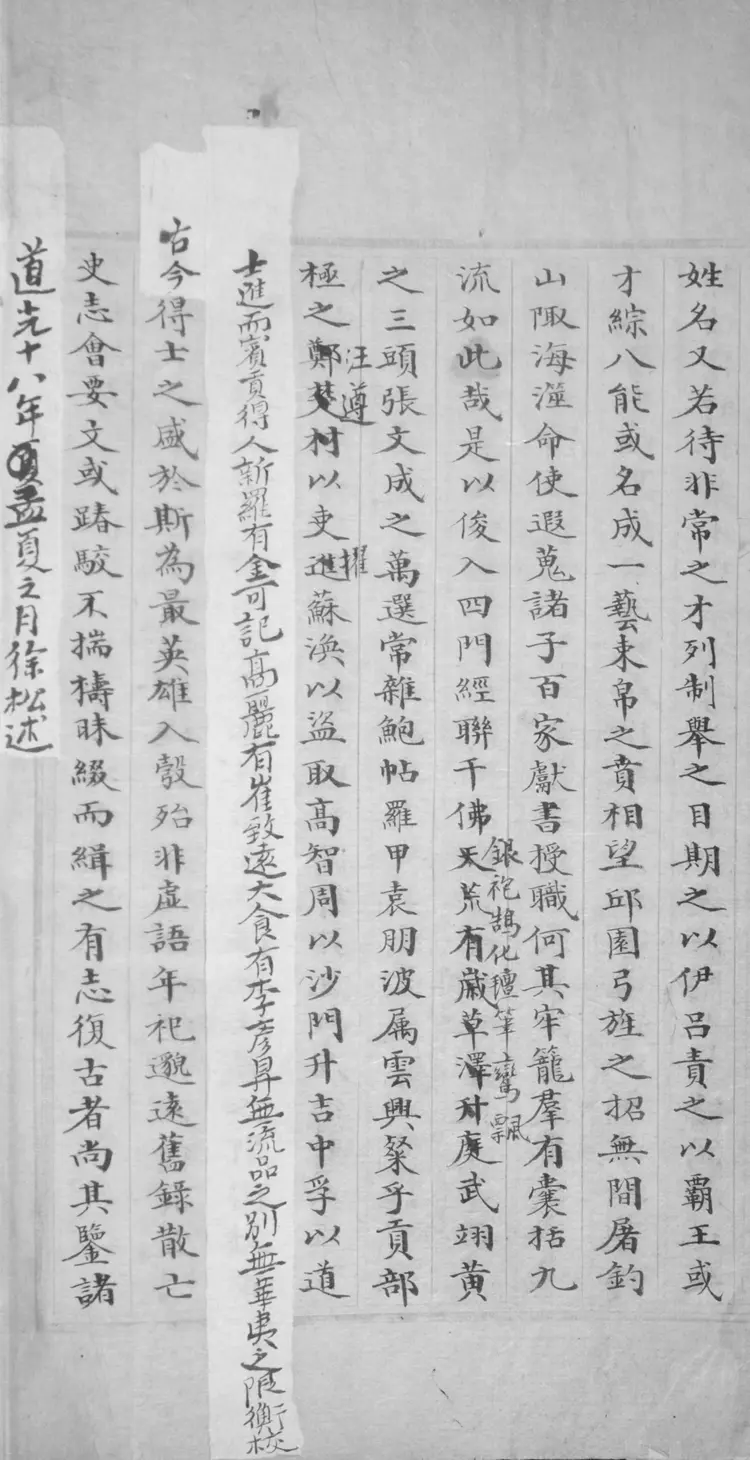 姓名又若待非常之才列制舉之目期之以伊呂責之以霸王或
才綜八能或名成一藝束帛之賁相望邱園弓旌之招無間屠釣
山陬海澨命使遐蒐諸子百家獻書授職何其牢籠羣有囊括九
銀袍鵠化氊筆鸞飄
流如此哉是以俊入四門經聯千佛天荒有歲草澤升庭武翊黃
之三頭張文成之萬選常雜鮑帖羅甲袁朋波属雲興粲乎貢部
汪遵擢
極之鄭村以吏進蘇渙以盜取高智周以沙門升吉中孚以道
士進而賓貢得人新羅有金可記高麗有崔致遠大食有李彦昇無流品之別無華夷之限衡校
古今得士之盛於斯為最英雄入彀殆非虛語年祀邈遠舊錄散亡
史志會要文或踳駁不揣檮昧綴而緝之有志復古者尚其鑒諸
道光十八年孟夏之月徐松述